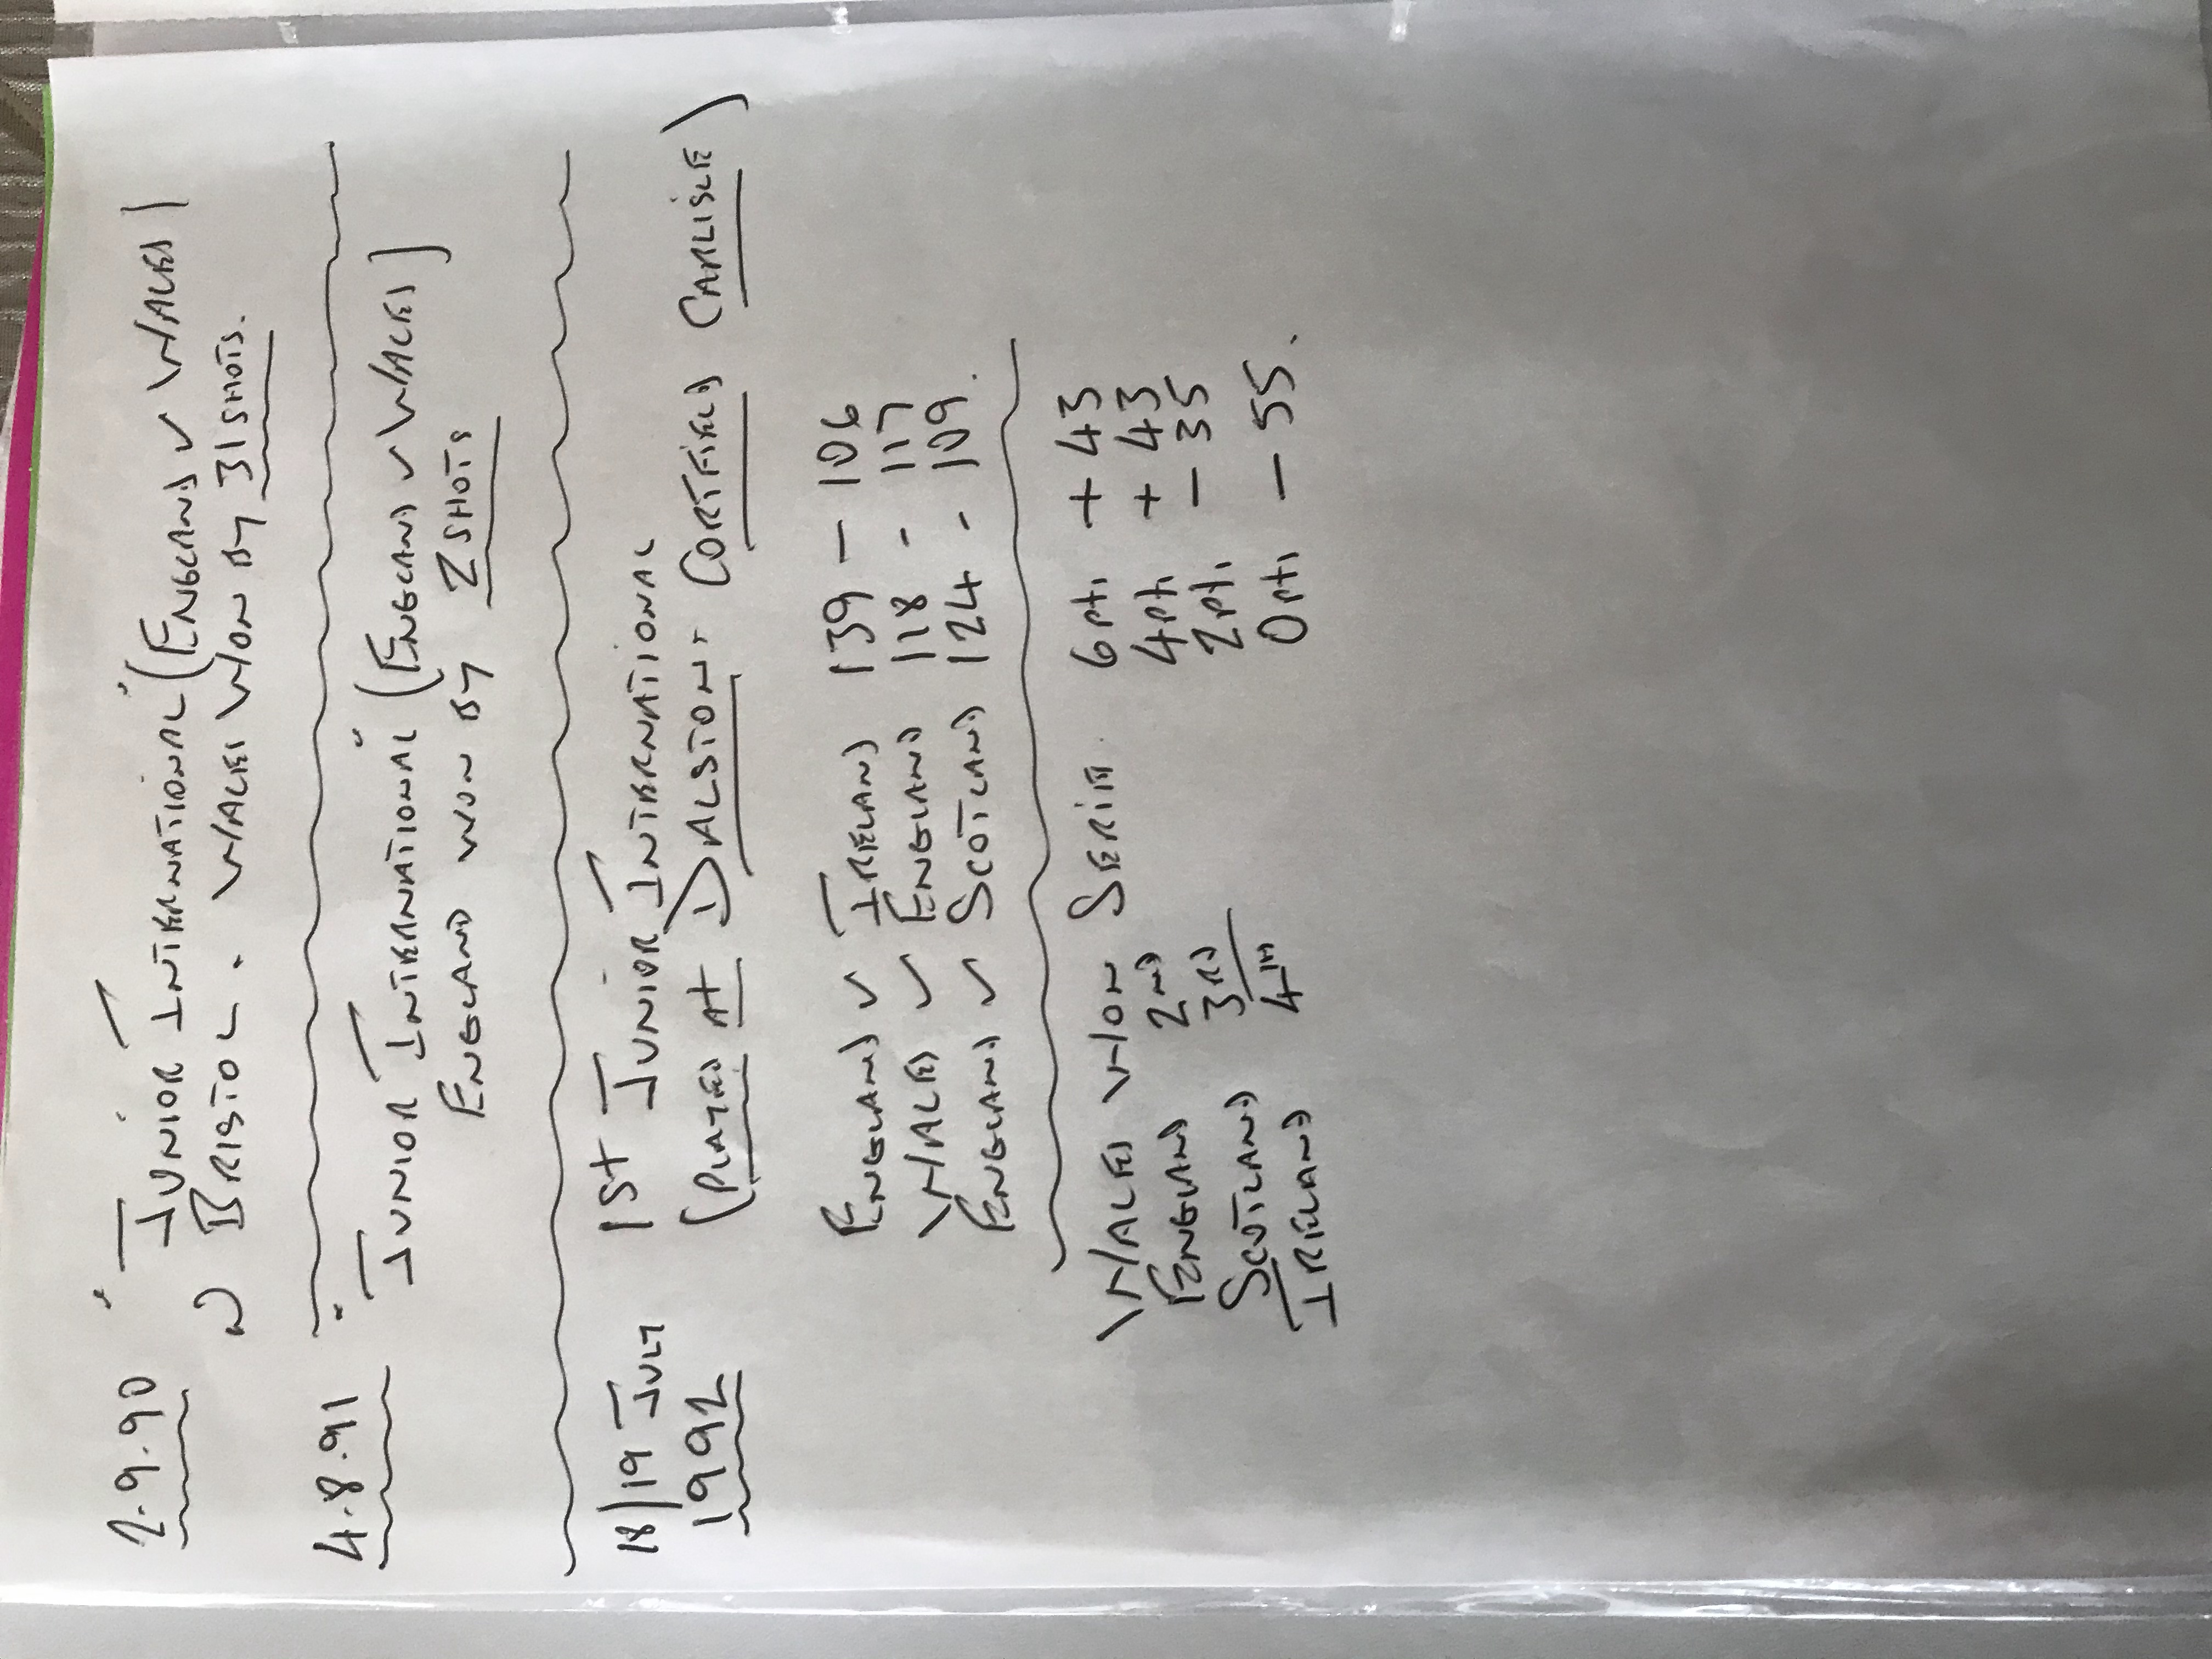 2.9.90 "JUNIOR INTERNATIONAL" (ENGLAND v WALES)
BRISTOL. WALES WON BY 31 SHOTS.
4.8.91 "JUNIOR INTERNATIONAL" (ENGLAND v WALES)
ENGLAND WON BY 2 SHOTS
18/19 JULY 1ST JUNIOR INTERNATIONAL
1992 (PLAYED AT DALSTON. CORTFIELD CARLISLE)
ENGLAND v IRELAND 139 - 106
WALES v ENGLAND 118 - 117
ENGLAND v SCOTLAND 124 - 109.
WALES WON SERIES. 6 pts + 43
ENGLAND 2ND 4 pts + 43
SCOTLAND 3RD 2 pts - 35
IRELAND 4TH 0 pts - 55.